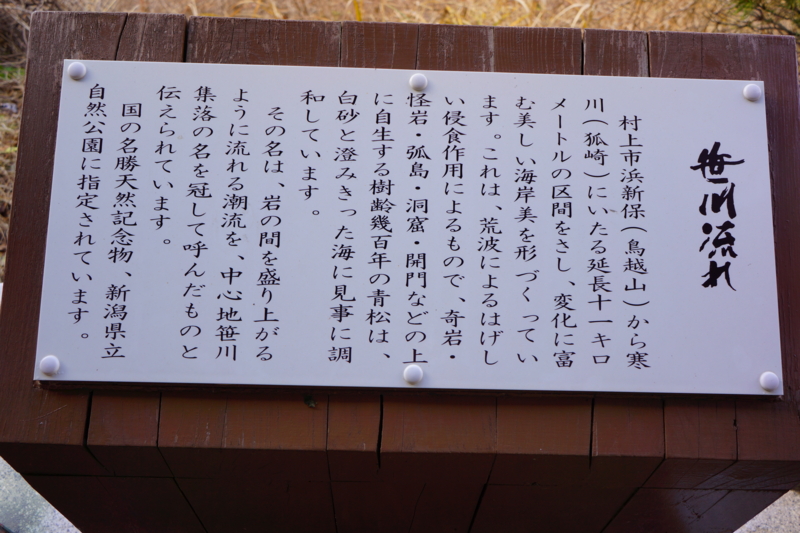 笹川流れ
村上市浜新保(鳥越山)から寒
川(狐崎)にいたる延長十一キロ
メートルの区間をさし、変化に富
む美しい海岸美を形づくってい
ます。これは、荒波によるはげし
い侵食作用によるもので、奇岩・
怪岩・弧島・洞窟・開門などの上
に自生する樹齢幾百年の青松は、
白砂と澄みきった海に見事に調
和しています。
その名は、岩の間を盛り上がる
ように流れる潮流を、中心地笹川
集落の名を冠して呼んだものと
伝えられています。
国の名勝天然記念物、新潟県立
自然公園に指定されています。